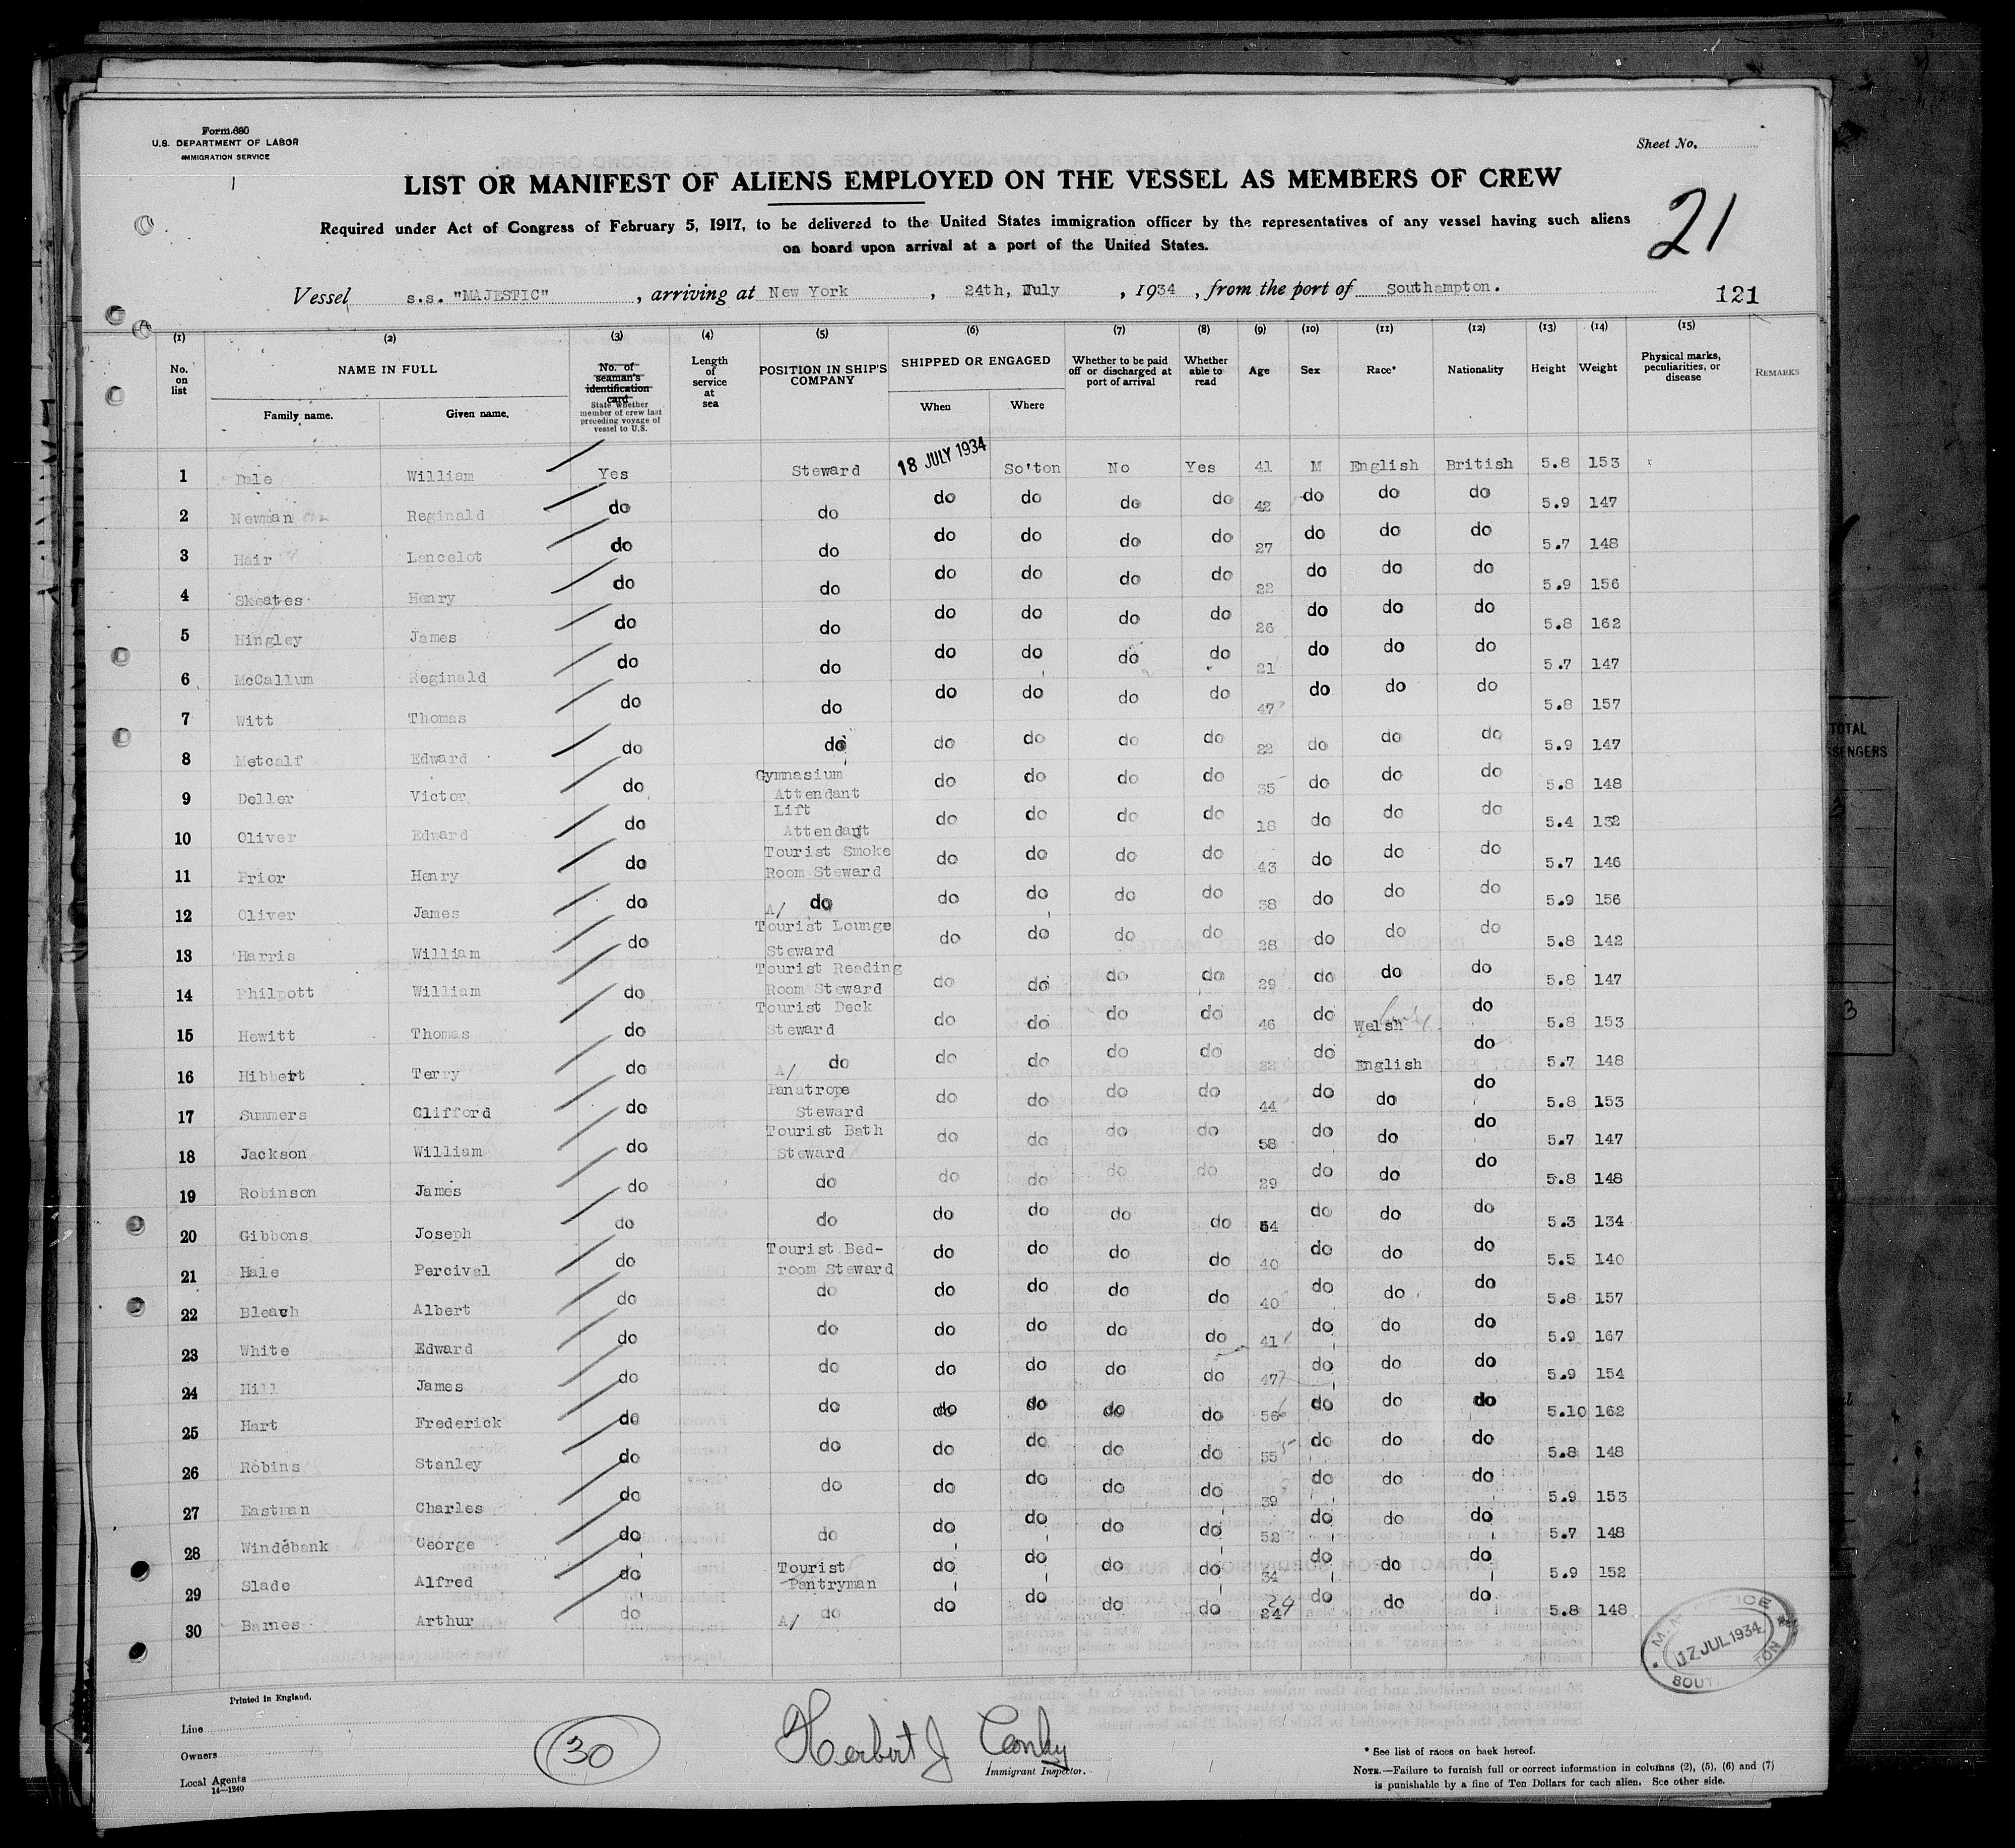 Form 680
U.S. DEPARTMENT OF LABOR
IMMIGRATION SERVICE
Sheet No.
LIST OR MANIFEST OF ALIENS EMPLOYED ON THE VESSEL AS MEMBERS OF CREW
21
Required under Act of Congress of February 5, 1917, to be delivered to the United States immigration officer by the representatives of any vessel having such aliens
on board upon arrival at a port of the United States.
Vessel s.s. "MAJESTIC", arriving at New York, 24th, July, 1934, from the port of Southampton.
121
(1) (2) (3) (4) (5) (6) (7) (8) (9) (10) (11) (12) (13) (14) (15)
No. on list NAME IN FULL Family name. Given name. No. of seaman's identification card State whether member of crew last preceding voyage of vessel to U.S. Length of service at sea POSITION IN SHIP'S COMPANY SHIPPED OR ENGAGED When Where Whether to be paid off or discharged at port of arrival Whether able to read Age Sex Race* Nationality Height Weight Physical marks, peculiarities, or disease REMARKS
1 Dale William Yes Steward 18 JULY 1934 So'ton No Yes 41 M English British 5.8 153
2 Newman Reginald do do do do do do 42 do do do 5.9 147
3 Hair Lancelot do do do do do do 27 do do do 5.7 148
4 Skeates Henry do do do do do do 22 do do do 5.9 156
5 Hingley James do do do do do do 26 do do do 5.8 162
6 McCallum Reginald do do do do do do 21 do do do 5.7 147
7 Witt Thomas do do do do do do 47 do do do 5.8 157
8 Metcalf Edward do do do do do do 22 do do do 5.9 147
9 Deller Victor do Gymnasium Attendant do do do do 35 do do do 5.8 148
10 Oliver Edward do Lift Attendant do do do do 18 do do do 5.4 132
11 Prior Henry do Tourist Smoke Room Steward do do do do 43 do do do 5.7 146
12 Oliver James do A/ do do do do do 38 do do do 5.9 156
13 Harris William do Tourist Lounge Steward do do do do 28 do do do 5.8 142
14 Philpott William do Tourist Reading Room Steward do do do do 29 do do do 5.8 147
15 Hewitt Thomas do Tourist Deck Steward do do do do 46 do Welsh do 5.8 153
16 Hibbert Terry do A/ do do do do do 22 do English do 5.7 148
17 Summers Clifford do Panatrope Steward do do do do 44 do do do 5.8 153
18 Jackson William do Tourist Bath Steward do do do do 58 do do do 5.7 147
19 Robinson James do do do do do do 29 do do do 5.8 148
20 Gibbons Joseph do do do do do do 54 do do do 5.3 134
21 Hale Percival do Tourist Bed-room Steward do do do do 40 do do do 5.5 140
22 Bleach Albert do do do do do do 40 do do do 5.8 157
23 White Edward do do do do do do 41 do do do 5.9 167
24 Hill James do do do do do do 47 do do do 5.9 154
25 Hart Frederick do do do do do do 56 do do do 5.10 162
26 Robins Stanley do do do do do do 55 do do do 5.8 148
27 Eastman Charles do do do do do do 39 do do do 5.9 153
28 Windebank George do do do do do do 52 do do do 5.7 148
29 Slade Alfred do Tourist Pantryman do do do do 34 do do do 5.9 152
30 Barnes Arthur do A/ do do do do do 24 24 do do do 5.8 148
12 JUL 1934
Printed in England.
Line
Owners
Local Agents
14—1240
30
Herbert J
Immigrant Inspector.
* See list of races on back hereof.
NOTE.—Failure to furnish full or correct information in columns (2), (5), (6) and (7)
is punishable by a fine of Ten Dollars for each alien. See other side.
TOTAL